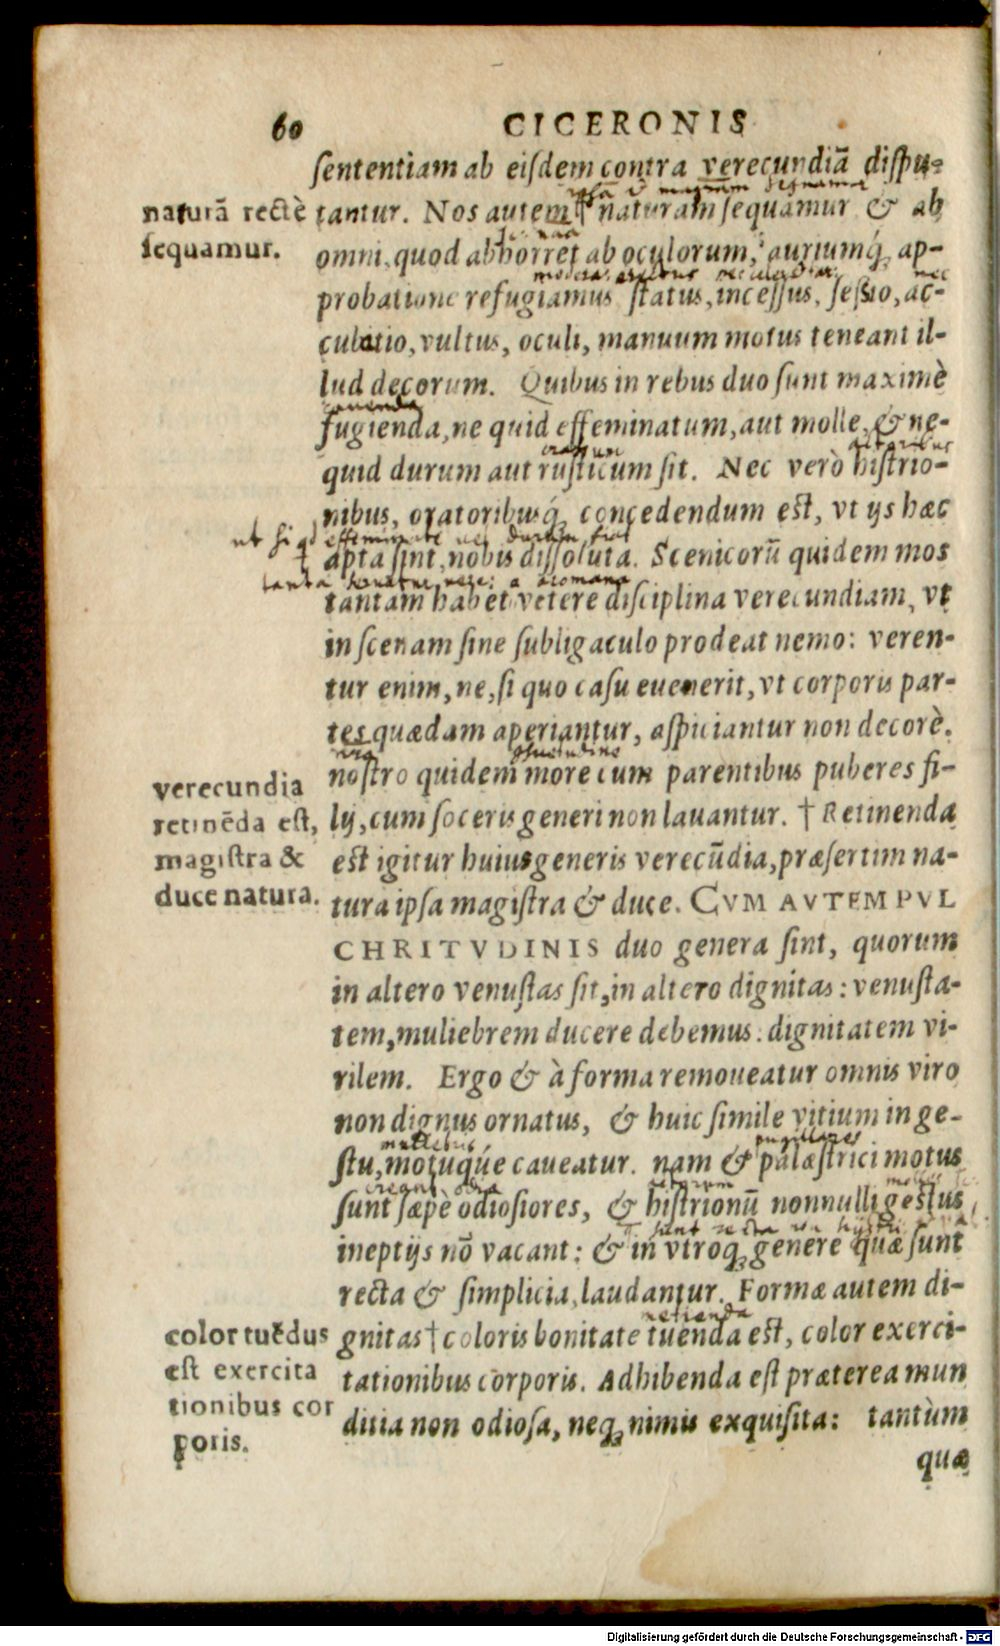 60 CICERONIS
ſententiam ab eiſdem contra verecundiā diſpu-
naturā rectè
ſequamur.
tantur. Nos autem † naturam ſequamur & ab
omni, quod abhorret ab oculorum, auriumq́, ap-
probatione refugiamus ſtatus, inceſſus, ſeſsio, ac-
cubatio, vultus, oculi, manuum motus teneant il-
lud decorum. Quibus in rebus duo ſunt maximè
cauenda
fugienda, ne quid effeminatum, aut molle, & ne-
quid durum aut ruſticum ſit. Nec verò hiſtrio-
nibus, oratoribusq́, concedendum eſt, vt ijs hæc
apta ſint, nobis diſſoluta. Scenicorū quidem mos
tantam habet vetere diſciplina verecundiam, vt
in ſcenam ſine ſubligaculo prodeat nemo: veren-
tur enim, ne, ſi quo caſu euenerit, vt corporis par-
tes quædam aperiantur, aſpiciantur non decorè.
conſuetudine
noſtro quidem more cum parentibus puberes fi-
verecundia
retinēda eſt,
magiſtra &
duce natura.
lij, cum ſoceris generi non lauantur. † Retinenda
eſt igitur huius generis verecūdia, præſertim na-
tura ipſa magiſtra & duce. CVM AVTEM PVL
CHRITVDINIS duo genera ſint, quorum
in altero venuſtas ſit, in altero dignitas: venuſta-
tem, muliebrem ducere debemus: dignitatem vi-
rilem. Ergo & à forma remoueatur omnis viro
non dignus ornatus, & huic ſimile vitium in ge-
ſtu, motuq́ue caueatur. nam & palæſtrici motus
ſunt ſæpè odioſiores, & hiſtrionū nonnulli geſtus
ineptijs nō vacant: & in vtroq, genere quæ ſunt
recta & ſimplicia, laudantur. Formæ autem di-
color tuēdus
eſt exercita
tionibus cor
poris.
gnitas † coloris bonitate tuenda eſt, color exerci-
tationibus corporis. Adhibenda eſt præterea mun
ditia non odioſa, neq, nimis exquiſita: tantùm
quæ
Digitalisierung gefördert durch die Deutsche Forschungsgemeinschaft - DFG